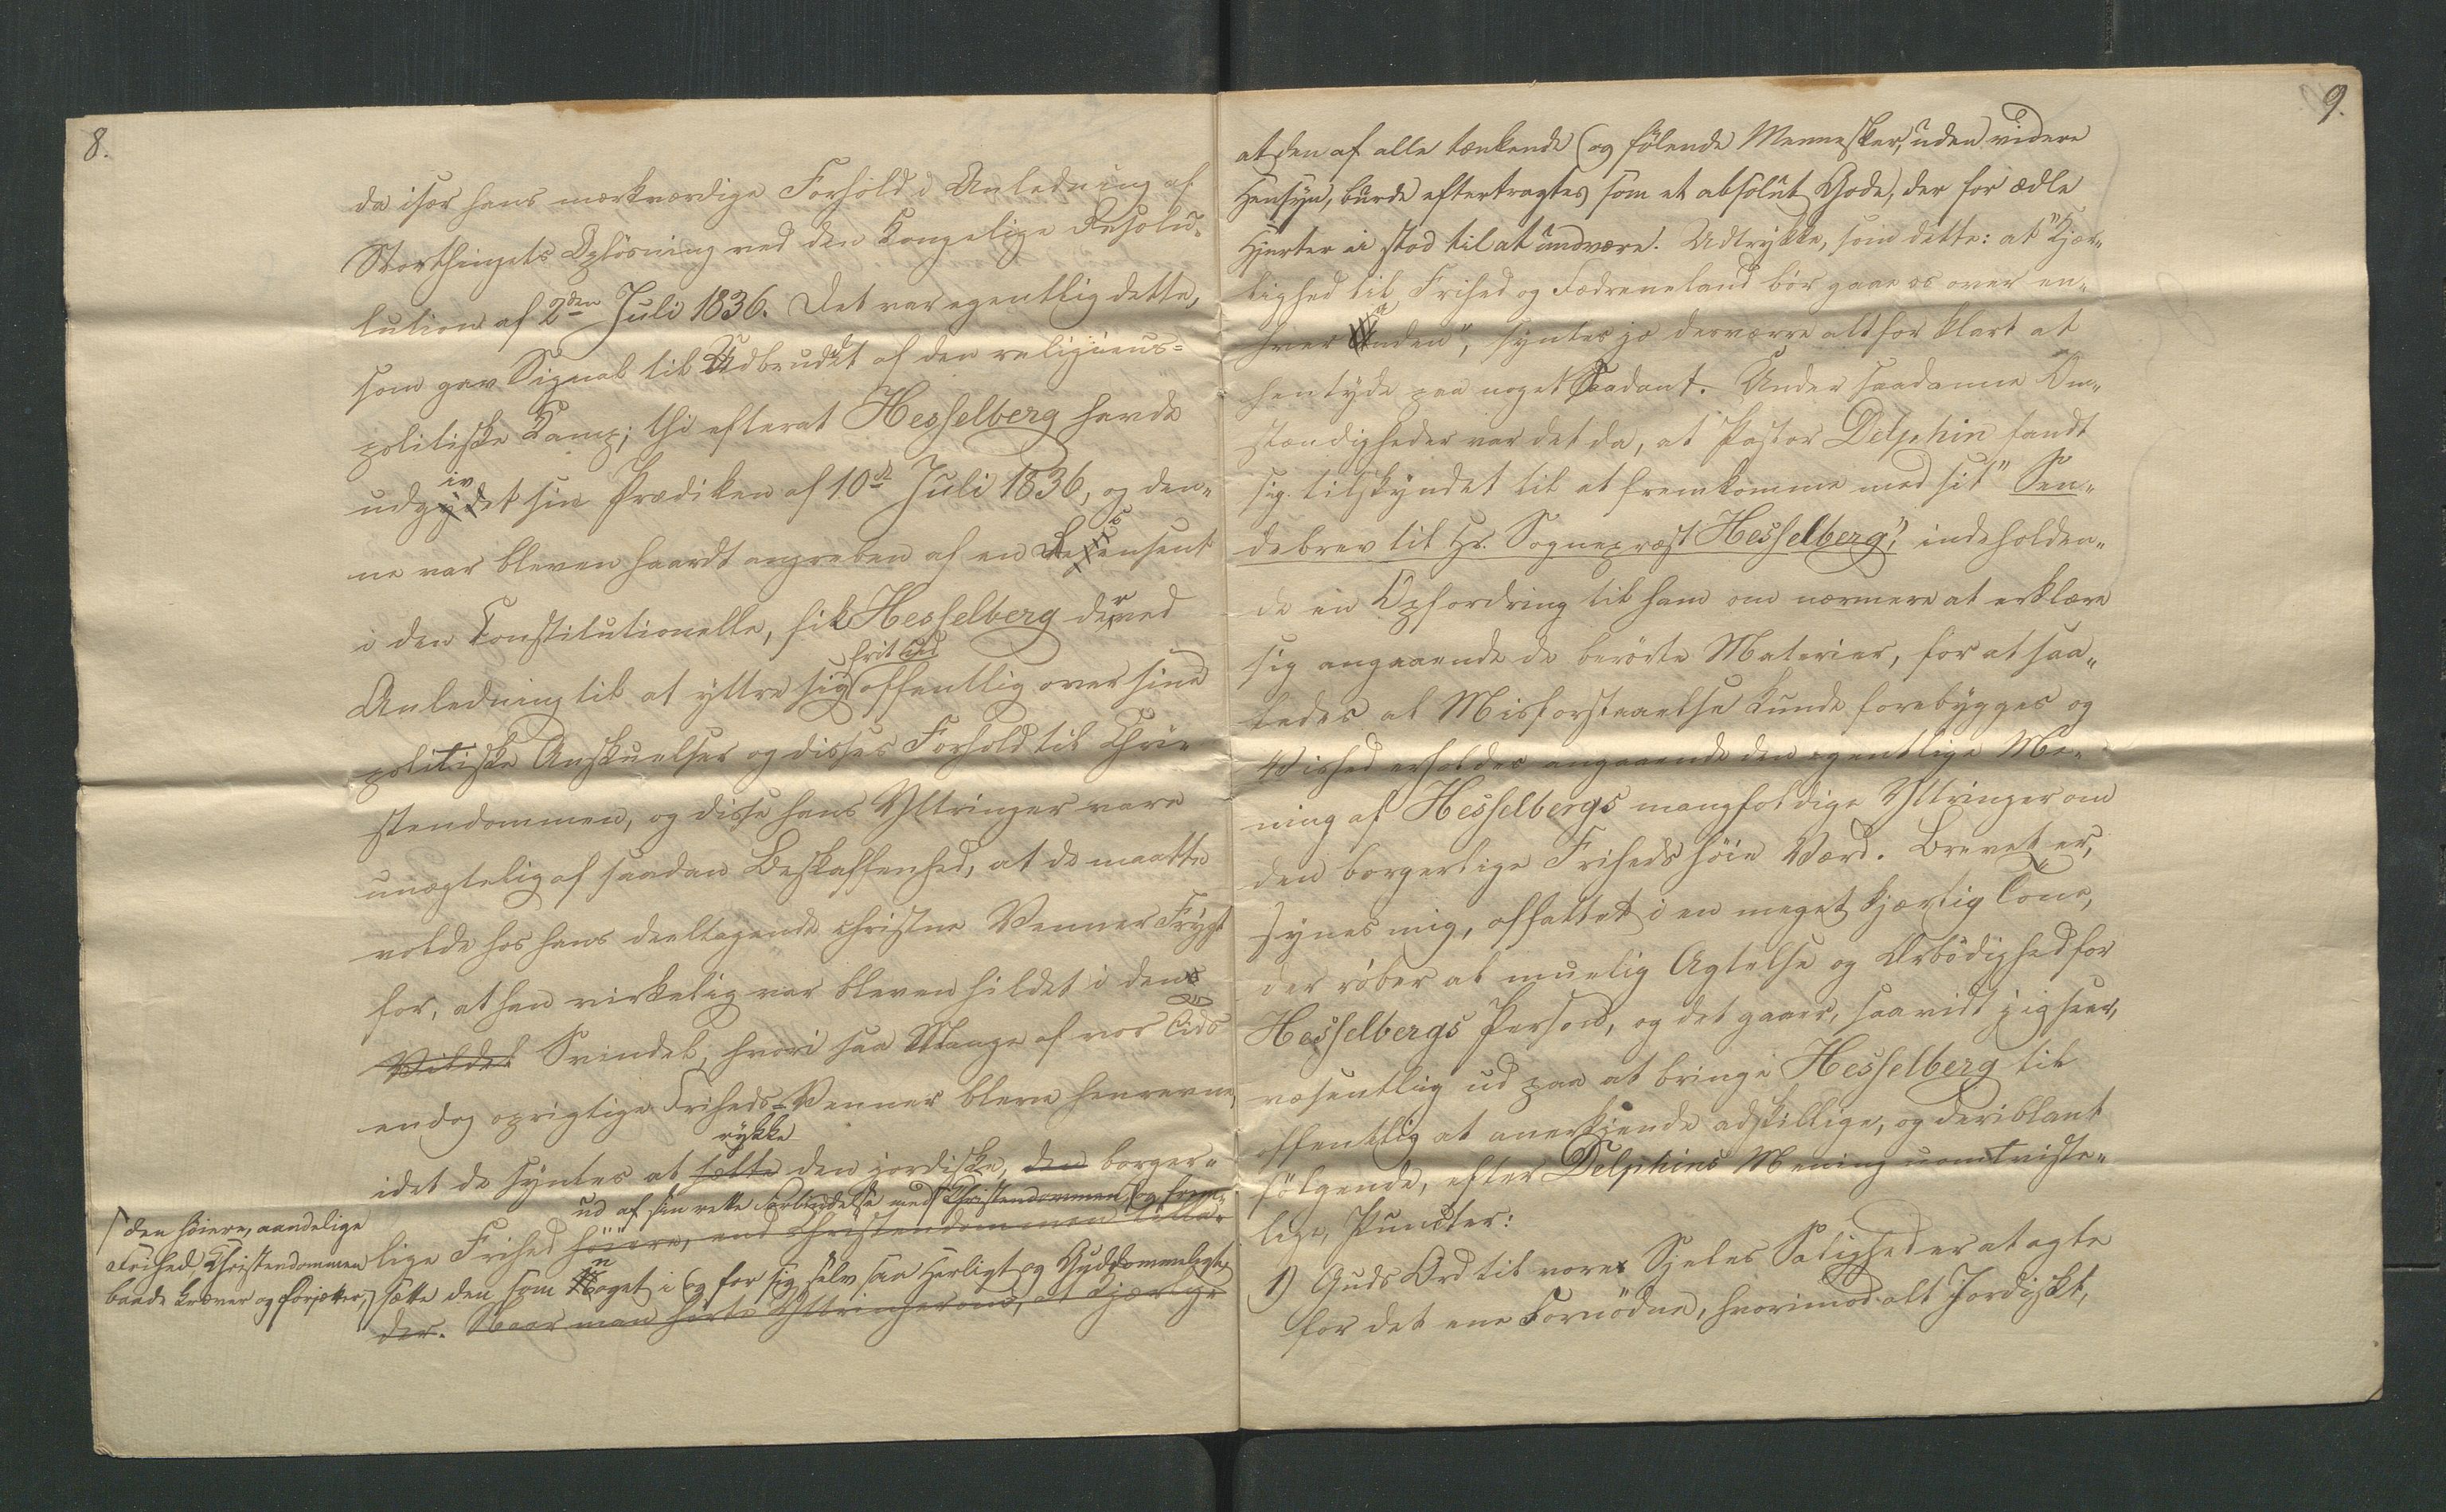 8.
da især hans mærkværdige Forhold i Anledning af
Storthingets Opløsning ved den Kongelige Resolu-
lution af 2den Juli 1836. Det var egentlig dette,
som gav Signal til Udbruddet af den religieus-
politiske Kamp; thi efterat Hesselberg havde
iv
udgydet sin Prædiken af 10de Juli 1836, og den-
ne var bleven haardt angreben af en Recensent
i den Constitutionelle, fik Hesselberg derved
frit ud
Anledning til at yttre sig offentlig over sine
politiske Anskuelser og disses Forhold til Chri-
stendommen, og disse hans Yttringer vare
unægtelig af saadan Beskaffenhed, at de maatte
volde hos hans deeltagende christne Venner Frygt
for, at han virkelig var bleven hildet i den
Svindel, hvori saa Mange af vor Tids
endog oprigtige Friheds-Venner bleve henrevne,
rykke
idet de syntes at sætte den jordiske, den borger-
ud af sin rette Forbindelse med Christendommen og frem-
lige Frihed høiere, end Christendommen tilla-
den høiere, aandelige
Frihed, Christendommen
baade kræver og forjætter,
sætte den som noget i og for sig selv saa Herligt og Guddommeligt,
der. Naar man hørte Yttringer om, at Kjærlig-
9.
at den af alle tænkende og følende Mennesker, uden videre
Hensyn, burde eftertragtes som et absolut Gode, der for ædle
Hjerter ei stod til at undvære. Udtrykke, som dette: at "Kjær-
lighed til Frihed og Fædreneland bør gaae os over en-
hver anden", syntes jo desværre altfor klart at
hentyde paa noget Saadant. Under saadanne Om-
stændigheder var det da, at Pastor Delphin fandt
sig tilskyndet til at fremkomme med sit "Sen-
debrev til Hr. Sognepræst Hesselberg", indeholden-
de en Opfordring til ham om nærmere at erklære
sig angaaende de berørte Materier, for at saa-
ledes al Misforstaaelse kunde forebygges og
Vished erholdes angaaende den egentlige Me-
ning af Hesselbergs mangfoldige Yttringer om
den borgerlige Friheds høie Værd. Brevet er,
synes mig, affattet i en meget kjærlig Tone,
der røber al muelig Agtelse og Ærbødighed for
Hesselbergs Person, og det gaaer, saavidt jeg seer,
væsentlig ud paa at bringe Hesselberg til
offentlig at anerkjende adskillige, og deriblant
følgende, efter Delphins Mening uomtviste-
lige, Puncter:
1) Guds Ord til vores Sjeles Salighed er at agte
for det ene Fornødne, hvorimod alt Jordiskt,